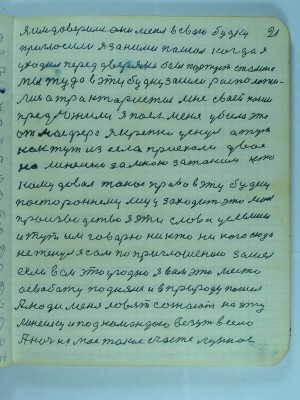 21
я им доверили они меня в свою будку
пригласили я за ними пошол когда я
уходил перед дверями был портрет сталина
мы туда в эту будку зашли расположи-
лись а трактористы мне своей каши
предложили я поел меня
от я крепко уснул а тут
как тут из села приехали двое
на линейке за мною затоким кто
кому довал такое право в эту будку
постороннему лицу заходит это меня
производство я эти слова услышил
и тут им говорю никто ни кого сюда
не тянул я сам по приглашению зашол
если вам это угодно я вам это место
освабажу поднялся и в природу пошол
А люди меня ловят сожают на эту
линейку и под командою везут в село
А ночь мое такое счастье лунное